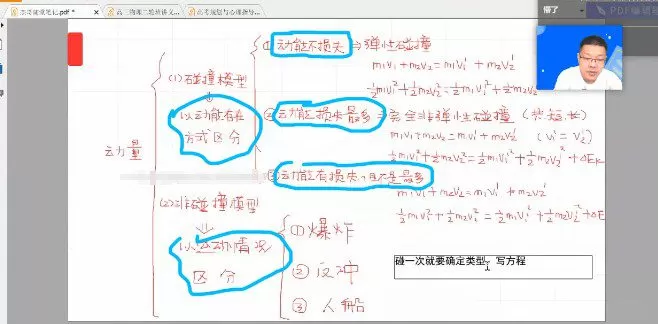 懂了
高三物理二轮培训讲义...
高考规划与心理指导...
PDF编辑
① 动能不损失 ⇒ 弹性碰撞
m₁v₁ + m₂v₂ = m₁v₁' + m₂v₂'
½m₁v₁² + ½m₂v₂² = ½m₁v₁'² + ½m₂v₂'²
(1) 碰撞模型
以动能存在
方式区分
② 动能损失最多 ⇒ 完全非弹性碰撞
m₁v₁ + m₂v₂ = m₁v₁' + m₂v₂' (v₁' = v₂')
½m₁v₁² + ½m₂v₂² = ½m₁v₁'² + ½m₂v₂'² + ΔEₖ
动力
③ 动能有损失,且不是最多
m₁v₁ + m₂v₂ = m₁v₁' + m₂v₂'
½m₁v₁² + ½m₂v₂² = ½m₁v₁'² + ½m₂v₂'² + ΔE
(2) 非碰撞模型
以运动情况
区分
① 爆炸
② 反冲
③ 人船
碰一次就要确定类型,写方程